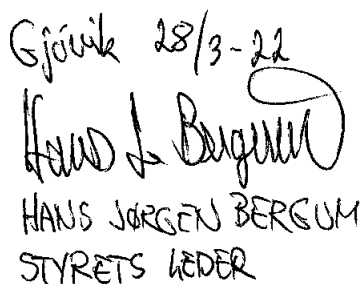 Gjøvik 28/3-22
Hans J. Bergum
HANS JØRGEN BERGUM
STYRETS LEDER